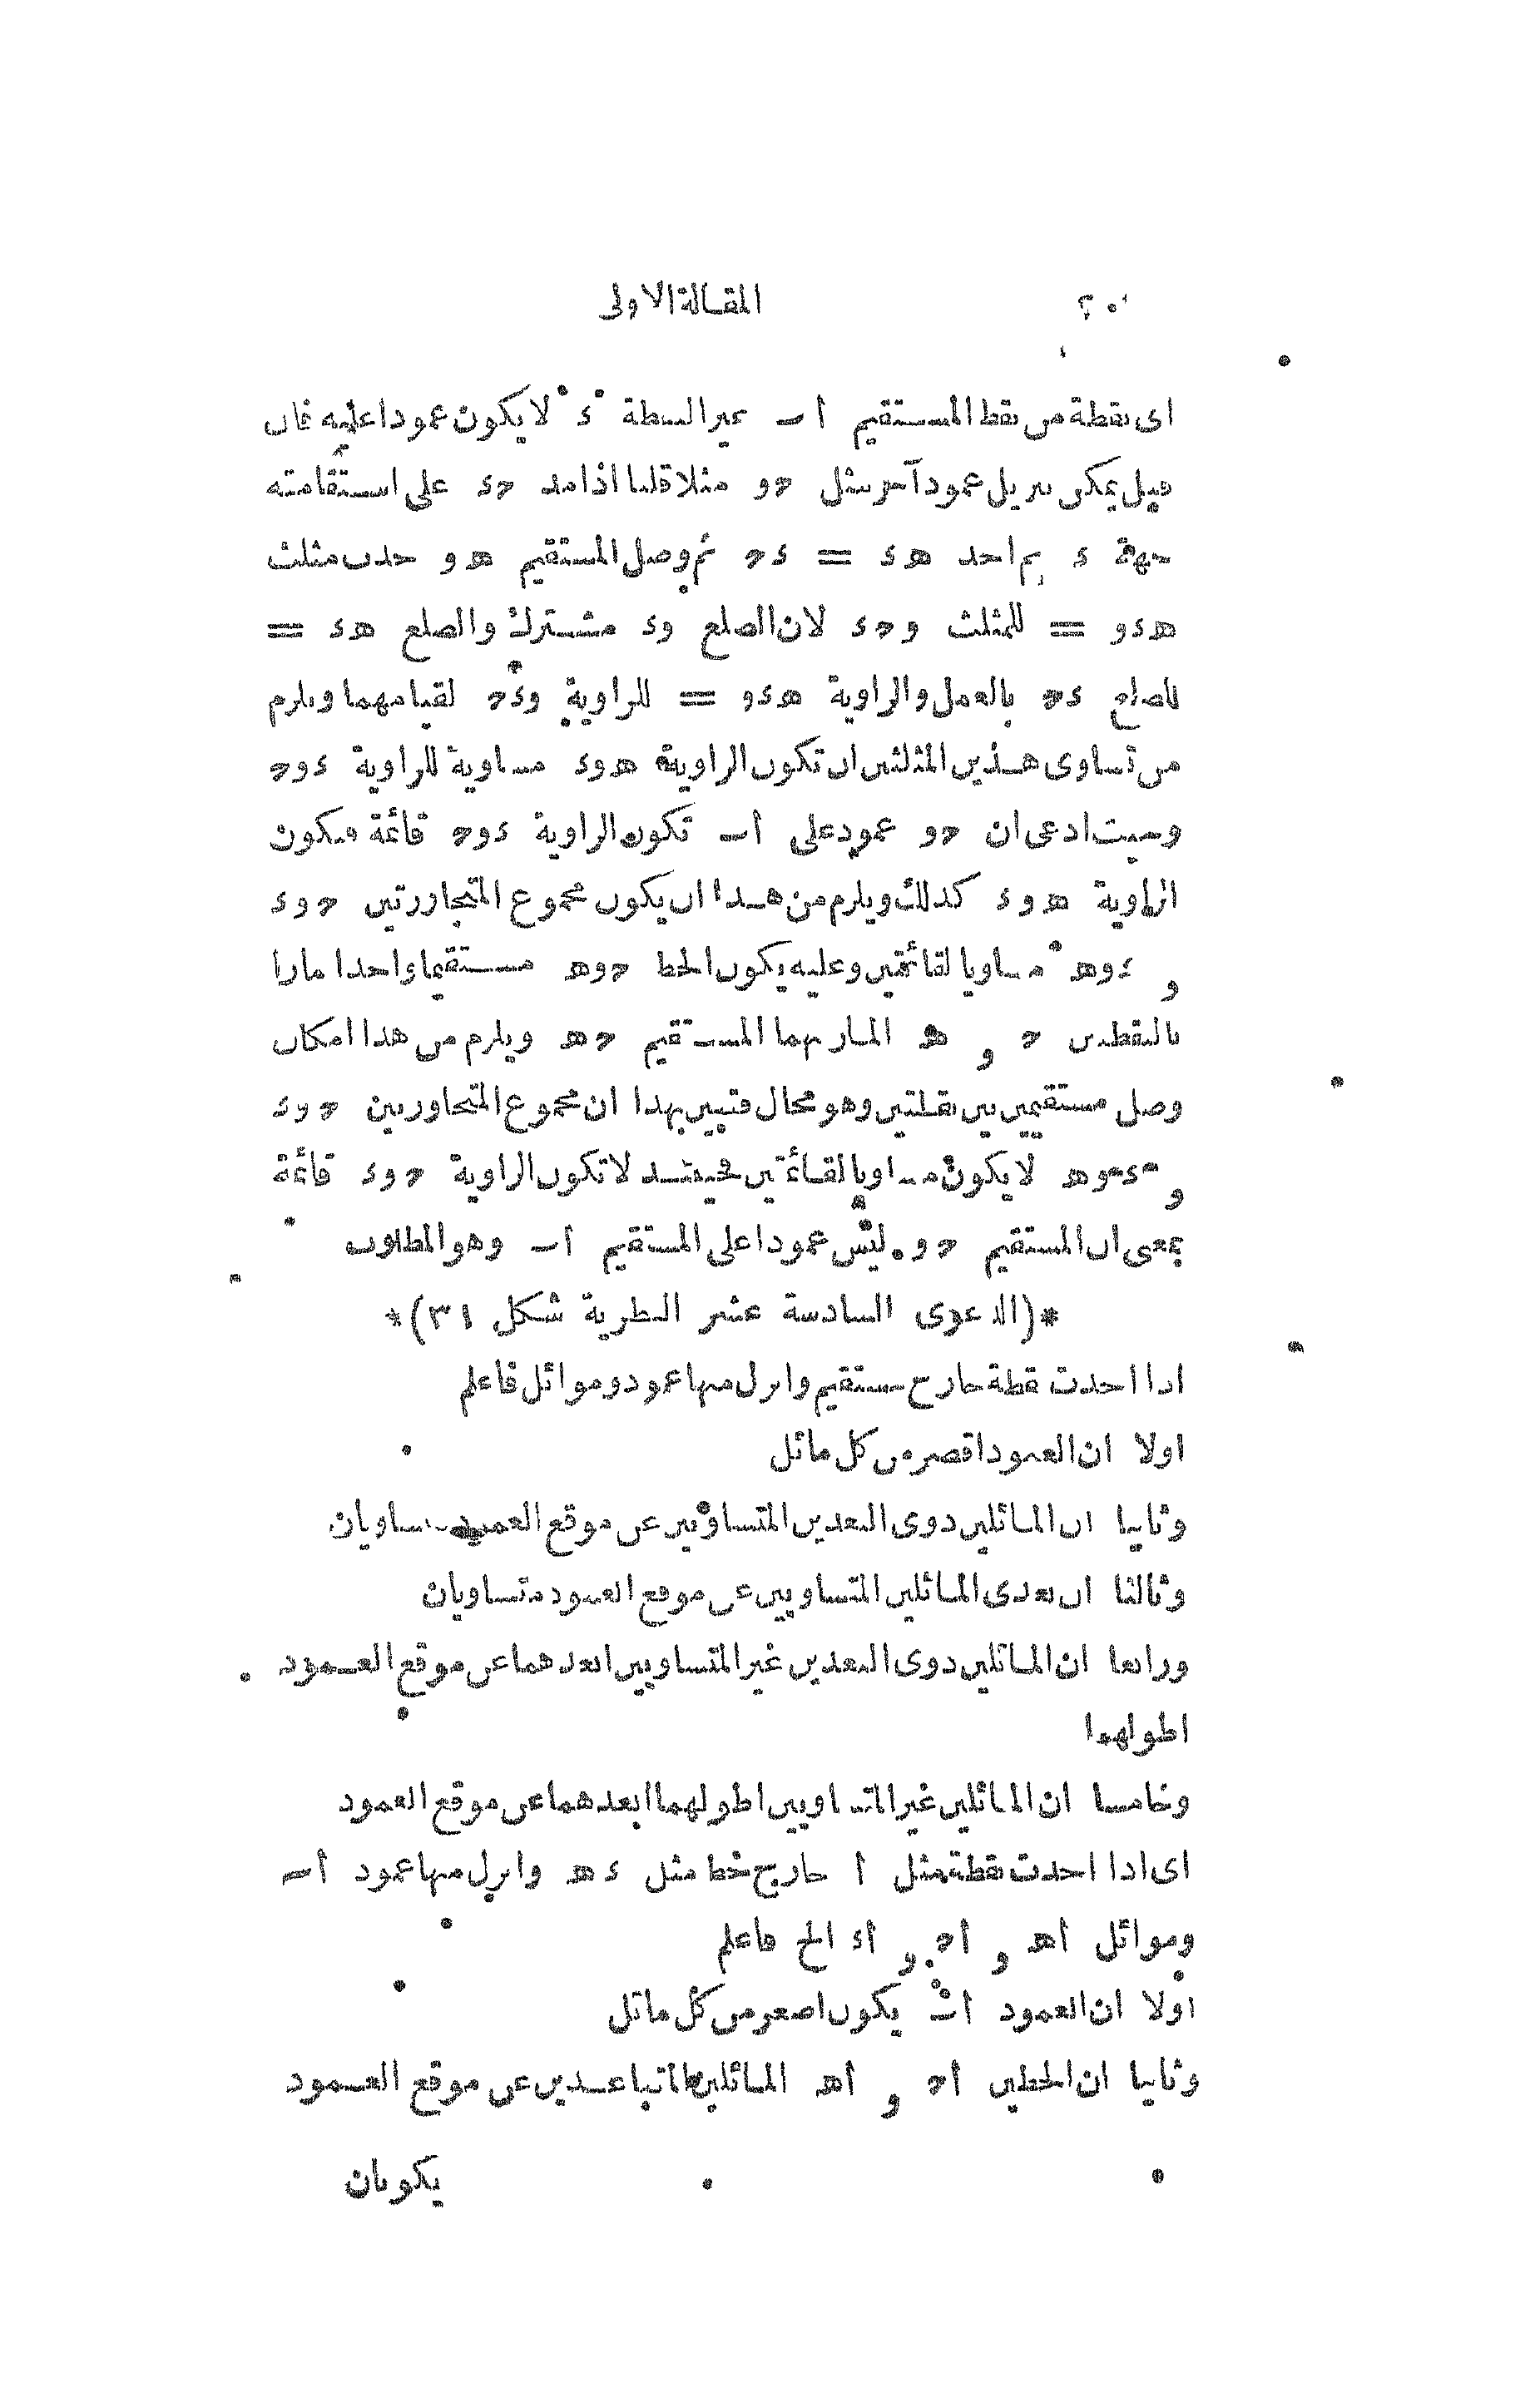 ٢٠ المقالة الاولى
اى نقطة من نقط المستقيم اب غير النقطة ء لا يكون عمودا عليه فان
قيل يمكن تنزيل عمود آخر مثل حو مثلا قلنا اذا مد حء على استقامته
جهة ء ثم اخذ هء = ءح ثم وصل المستقيم هو حدث مثلث
هءو = للمثلث وحء لان الضلع وء مشترك والضلع هء =
للضلع ءح بالعمل والزاوية هءو = للزاوية وءح لقيامهما ويلزم
من تساوى هذين المثلثين ان تكون الزاوية هوء مساوية للزاوية ءوح
وحيث ادعى ان حو عمود على اب تكون الزاوية ءوح قائمة فيكون
الزاوية هوء كذلك ويلزم من هذا ان يكون مجموع المتجاورتين حوء
و ءوه مساويا لقائمتين وعليه يكون الخط حوه مستقيما واحدا مارا
بالنقطتين ح و ه المار بهما المستقيم حه ويلزم من هذا امكان
وصل مستقيمين بين نقطتين وهو محال فتبين بهذا ان مجموع المتجاورتين حوء
و ءوه لا يكون مساويا لقائمتين فحينئذ لا تكون الزاوية حوء قائمة
بمعنى ان المستقيم حو ليس عمودا على المستقيم اب وهو المطلوب
*(الدعوى السادسة عشر النظرية شكل ٣١)*
اذا اخذت نقطة خارج مستقيم وانزل منها عمود وموائل فاعلم
اولا ان العمود اقصر من كل مائل
وثانيا ان المائلين ذوى البعدين المتساويين عن موقع العمود متساويان
وثالثا ان بعدى المائلين المتساويين عن موقع العمود متساويان
ورابعا ان المائلين ذوى البعدين غير المتساويين ابعدهما عن موقع العمود
اطولهما
وخامسا ان المائلين غير المتساويين اطولهما ابعدهما عن موقع العمود
اى اذا اخذت نقطة مثل ا خارج خط مثل ءه وانزل منها عمود اب
وموائل اه و اح و اء الخ فاعلم
اولا ان العمود اب يكون اصغر من كل مائل
وثانيا ان الخطين اح و اه المائلين المتباعدين عن موقع العمود
يكونان